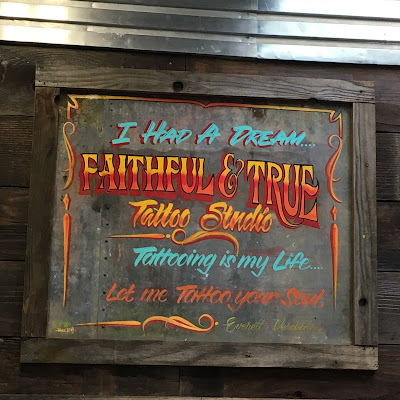 I Had A Dream....
FAITHFUL & TRUE
Tattoo Studio
Tattooing is my Life....
Let me Tattoo your Soul.